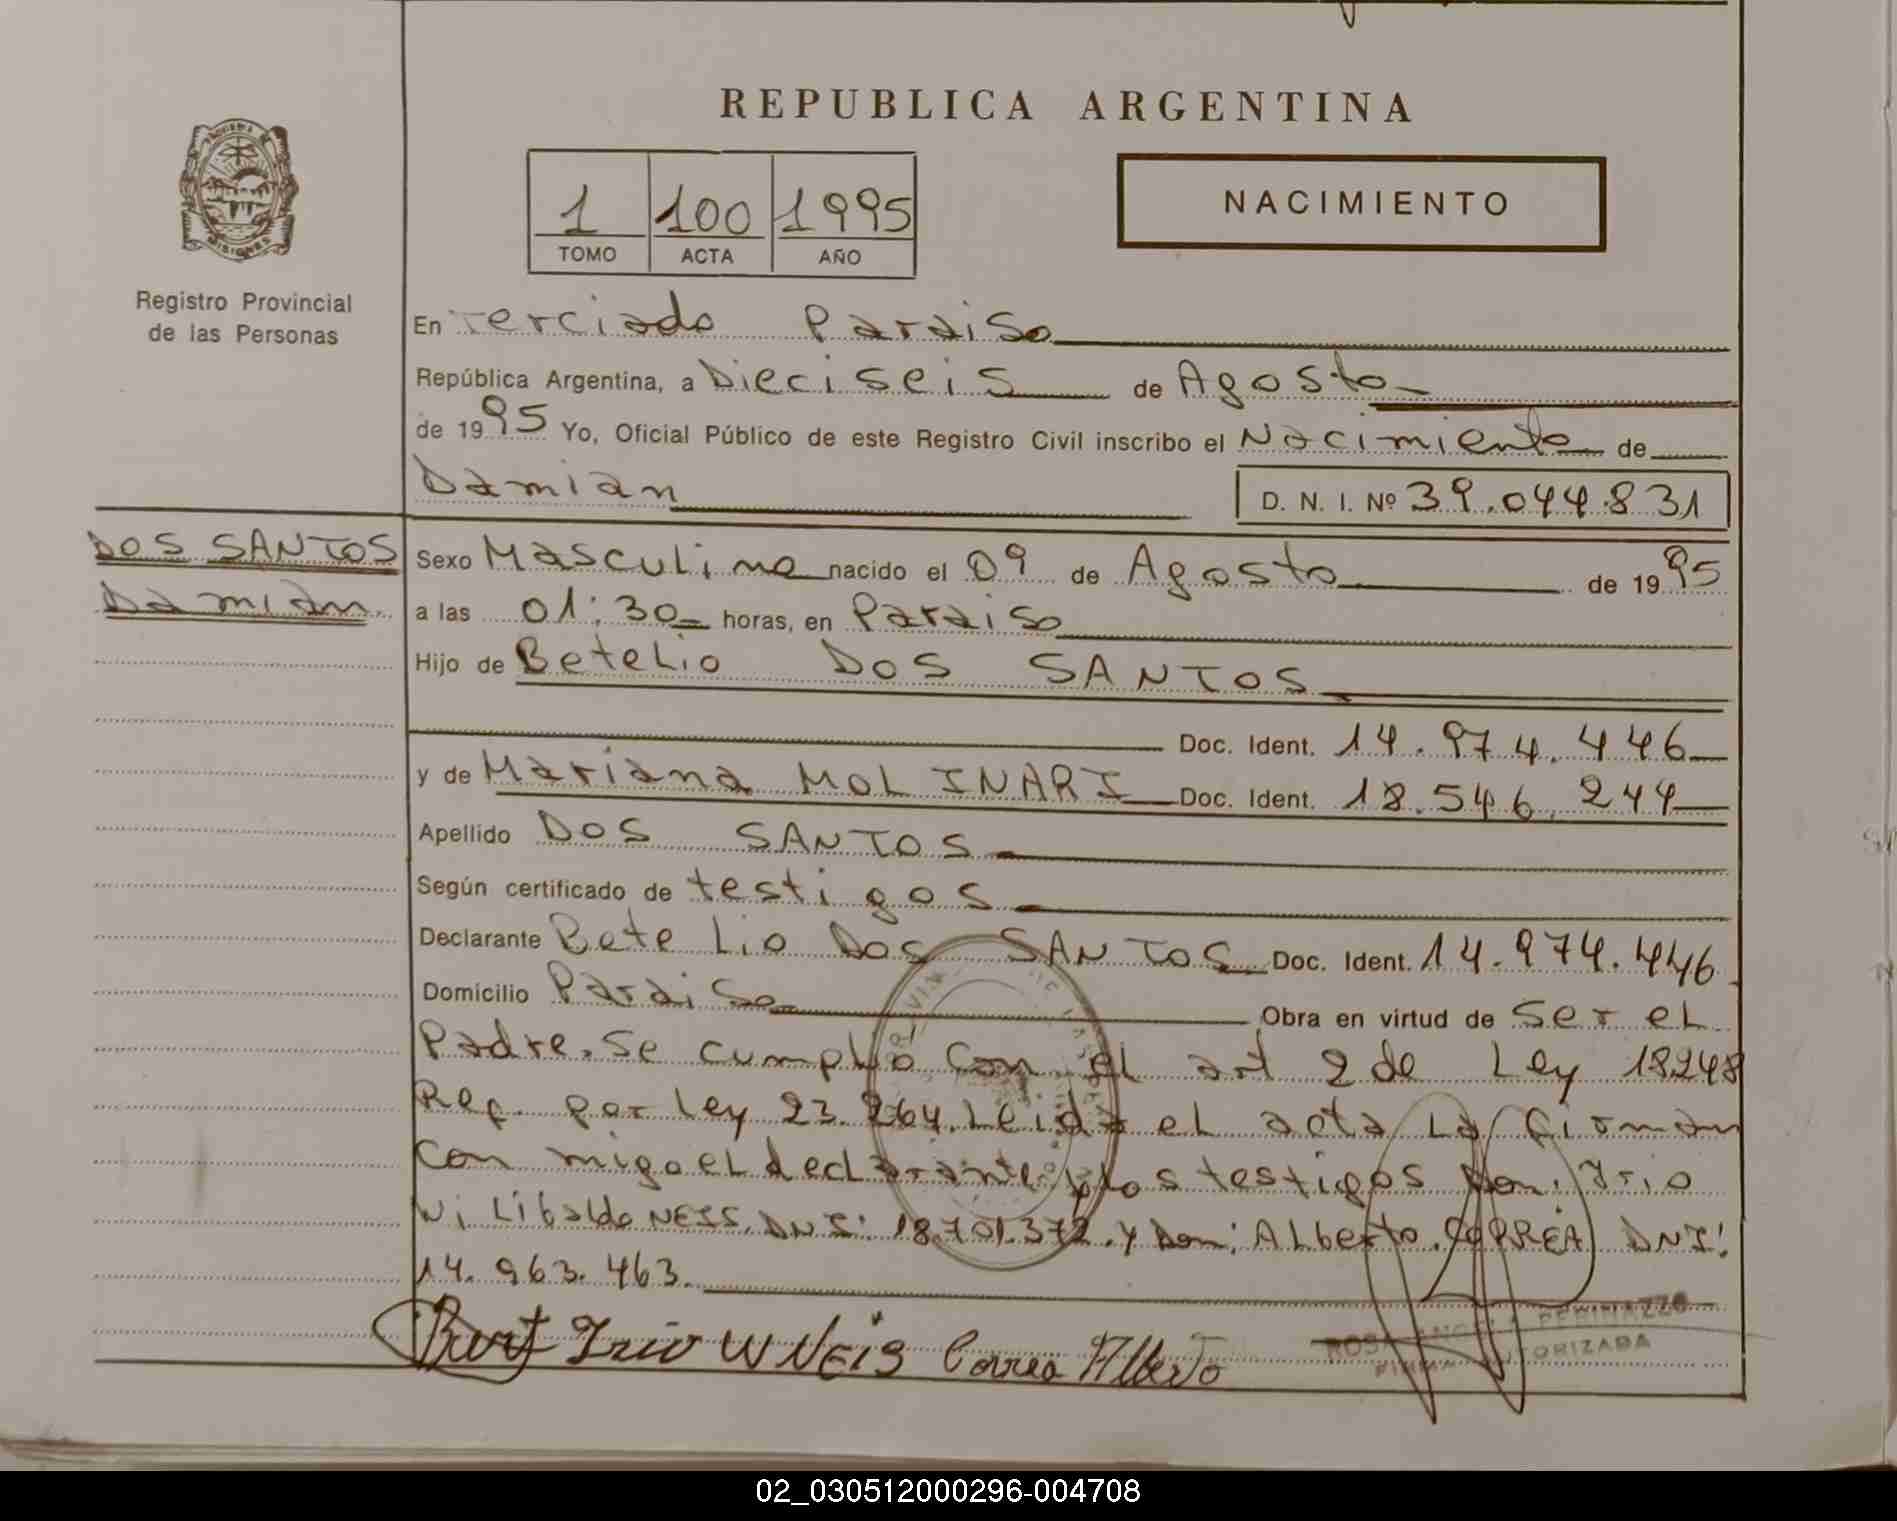 REPUBLICA ARGENTINA
NACIMIENTO
1 100 1995
TOMO ACTA AÑO
MISIONES
Registro Provincial
de las Personas
En Terciado Paraiso
República Argentina, a Dieciseis de Agosto
de 1995 Yo, Oficial Público de este Registro Civil inscribo el Nacimiento de
Damian
D. N. I. Nº 39.044.831
DOS SANTOS
Damian
Sexo Masculino nacido el 09 de Agosto de 1995
a las 01:30 horas, en Paraiso
Hijo de Betelio DOS SANTOS
Doc. Ident. 14.974.446
y de Mariana MOLINARI Doc. Ident. 18.546.244
Apellido DOS SANTOS
Según certificado de testigos
Declarante Betelio DOS SANTOS Doc. Ident. 14.974.446
Domicilio Paraiso Obra en virtud de ser el
Padre. Se cumplió con el art 2 de Ley 18248
Ref. por Ley 23.264. Leida el acta la firman
con migo el declarante y los testigos Don: Irio
Wilibaldo NEIS. DNI: 18.701.372. y Don: Alberto. CORREA DNI:
14.963.463.
Irio W NEIS Correa Alberto
ROSA ANGELA PERINAZZO
FIRMA AUTORIZADA
02_030512000296-004708